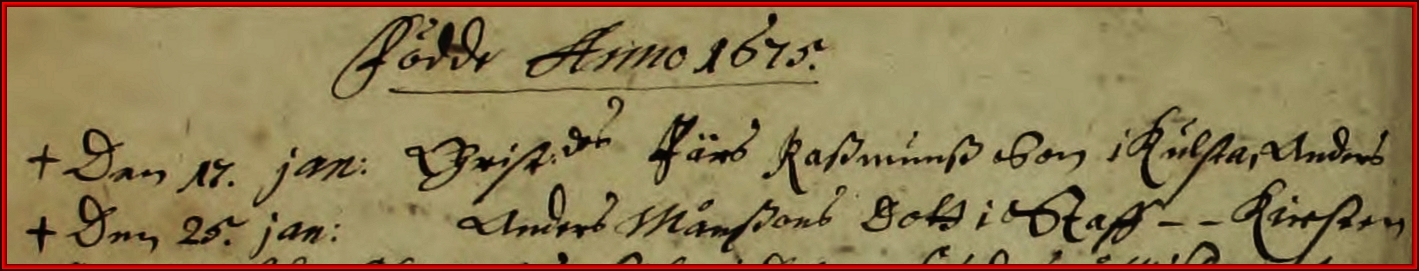 Födde Anno 1675.
+ Den 17. jan: Christ: des Pärs Raßmunß Son i Kulsta, Anders
+ Den 25. jan: Anders Månßons Dott i Staff - - Kirsten